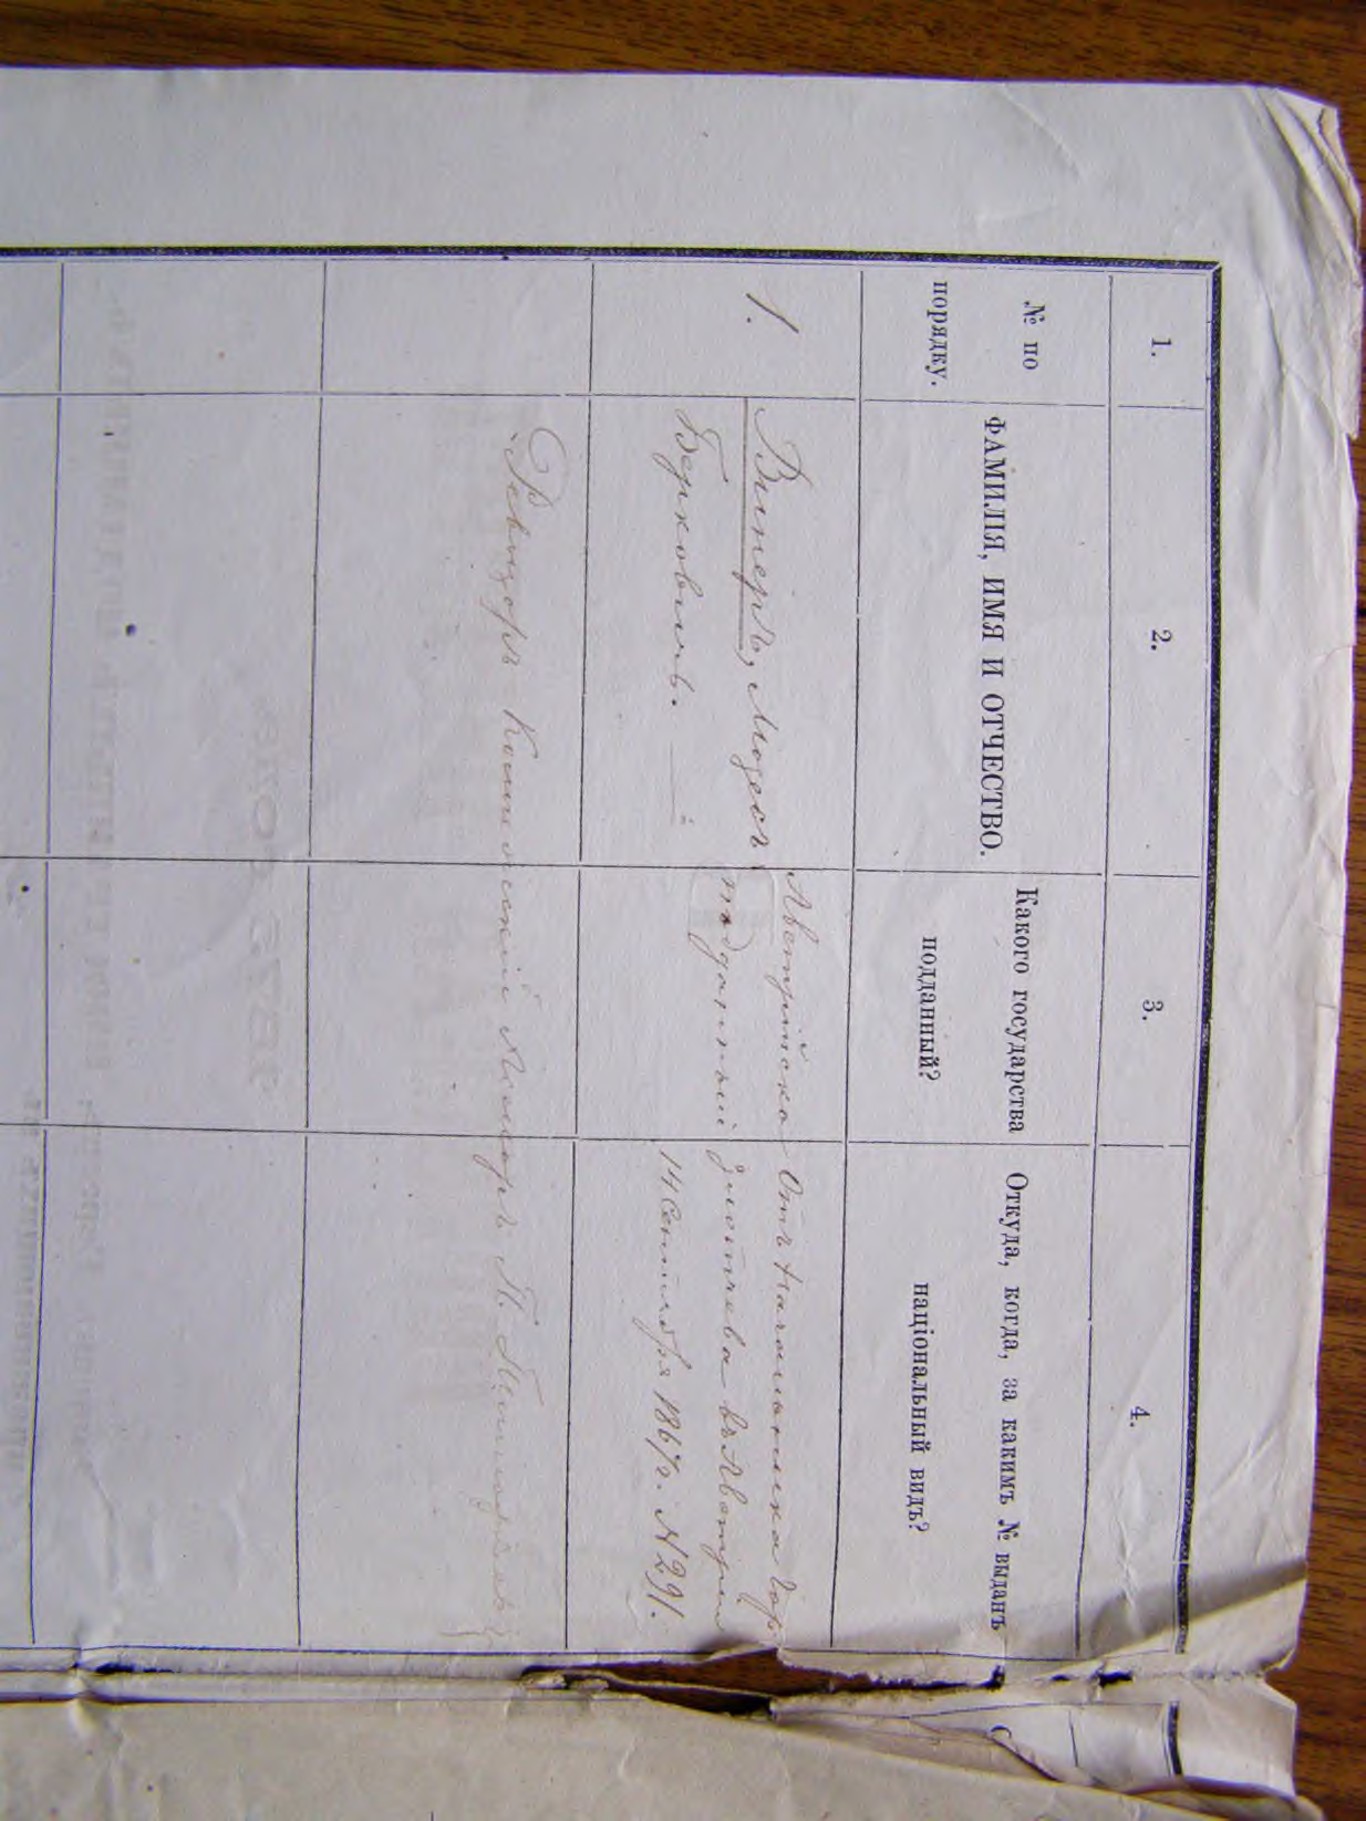 1.
2.
3.
4.
№ по
порядку.
ФАМИЛІЯ, ИМЯ И ОТЧЕСТВО.
Какого государства
подданный?
Откуда, когда, за какимъ № выданъ
національный видъ?
1.
Винеръ, Мозесъ
Берковичъ.
Австрійско
подданный
Отъ Начальника Гор.
Злочева въ Австріи
14 Сентября 1867г. N 291.
Ревизоръ Коллежскій Ассесоръ П.